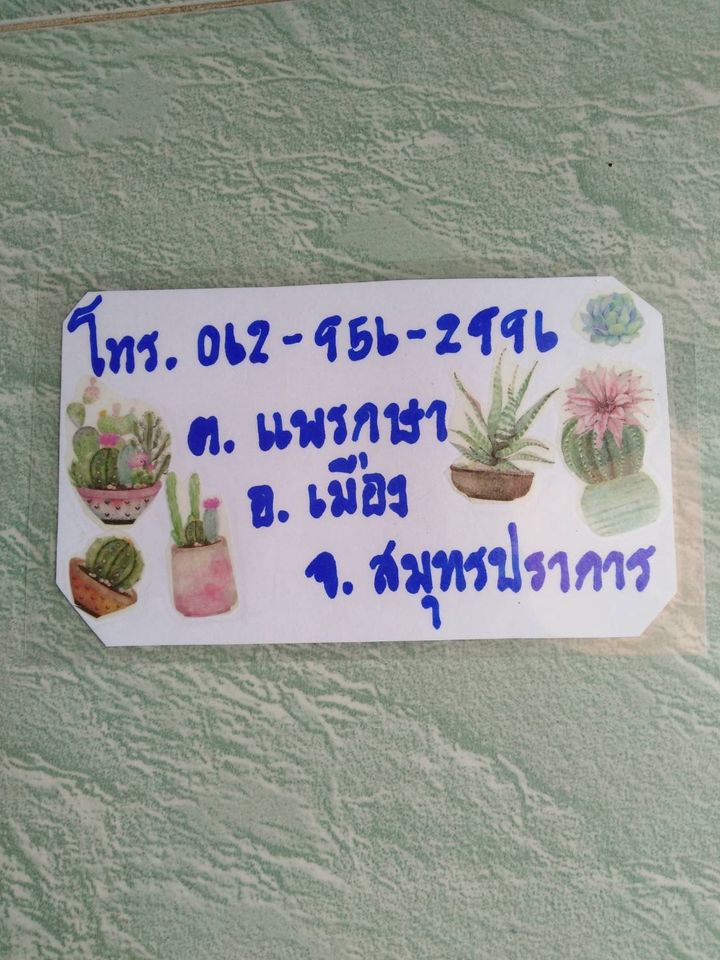 โทร. 062-956-2996
ต. แพรกษา
อ. เมือง
จ. สมุทรปราการ